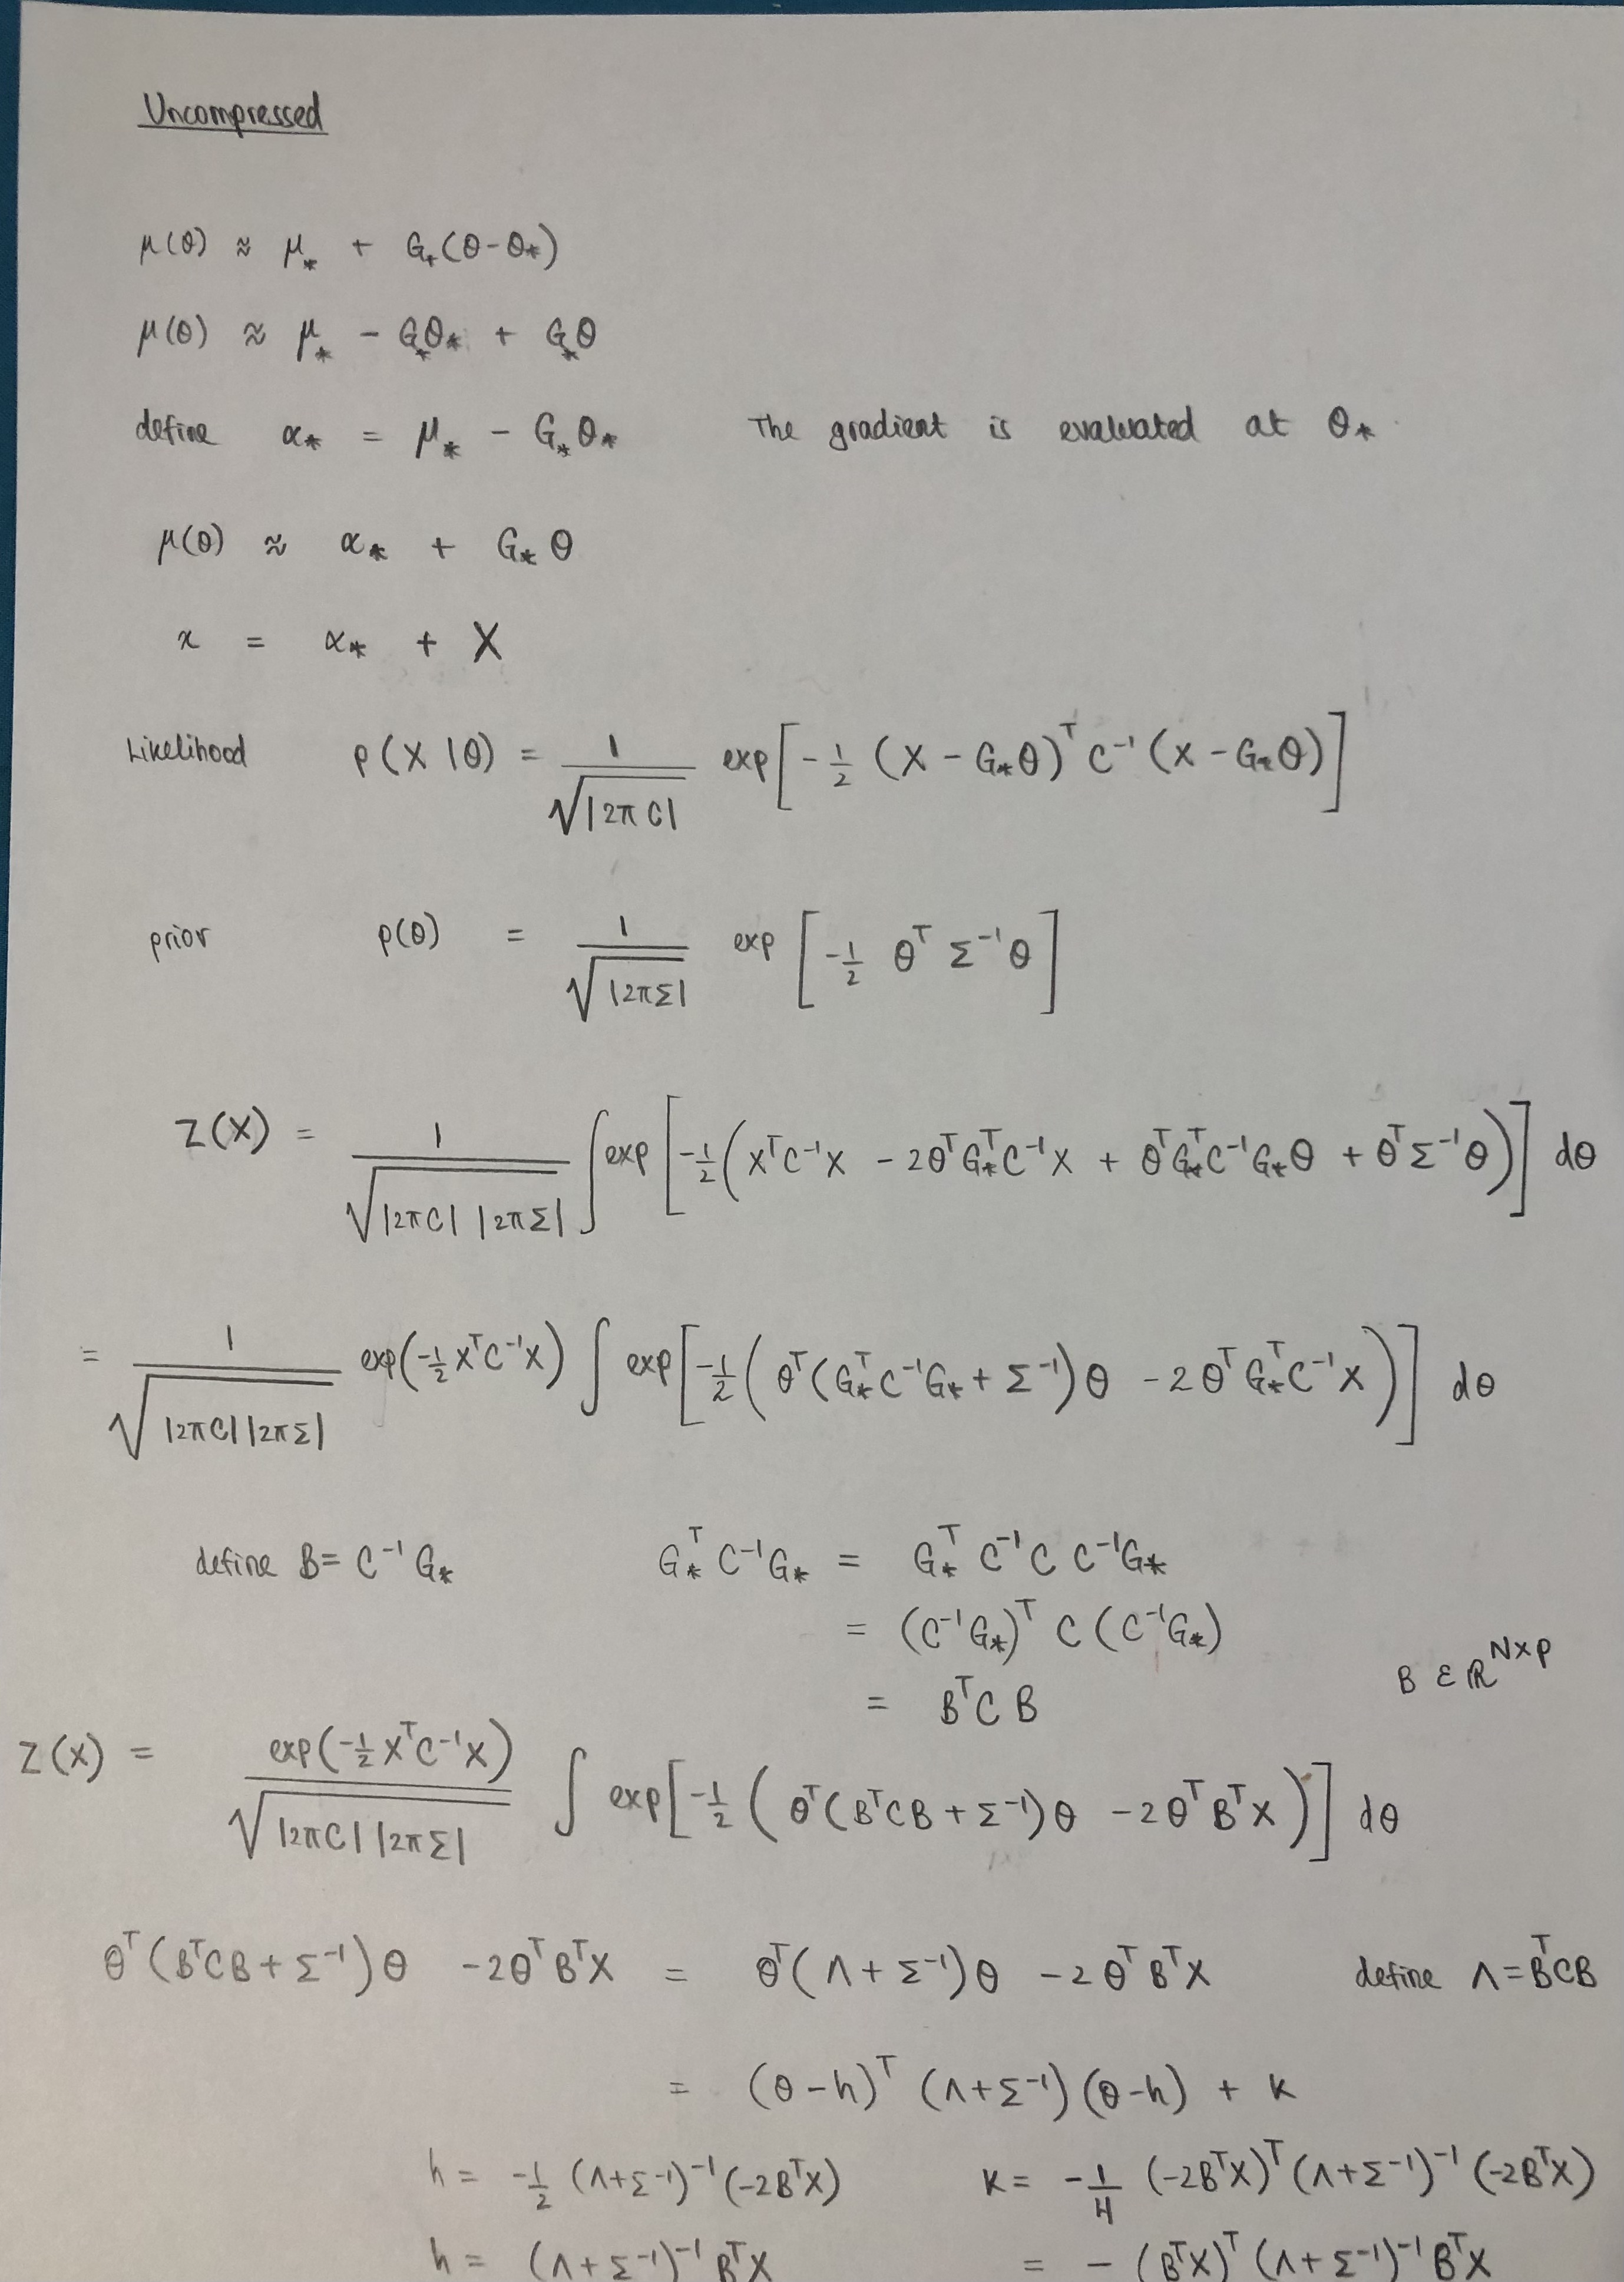 Uncompressed
μ(θ) ≈ μ_* + G_*(θ-θ_*)
μ(θ) ≈ μ_* - G_*θ_* + G_*θ
define α_* = μ_* - G_*θ_* The gradient is evaluated at θ_*
μ(θ) ≈ α_* + G_* θ
x = α_* + X
Likelihood p(X|θ) = 1/√(|2πC|) exp[-1/2 (X - G_*θ)^T C^-1 (X - G_*θ)]
prior p(θ) = 1/√(|2πΣ|) exp[-1/2 θ^T Σ^-1 θ]
Z(X) = 1/√(|2πC| |2πΣ|) ∫ exp[-1/2 (X^T C^-1 X - 2θ^T G_*^T C^-1 X + θ^T G_*^T C^-1 G_* θ + θ^T Σ^-1 θ)] dθ
= 1/√(|2πC| |2πΣ|) exp(-1/2 X^T C^-1 X) ∫ exp[-1/2 (θ^T (G_*^T C^-1 G_* + Σ^-1) θ - 2θ^T G_*^T C^-1 X)] dθ
define B = C^-1 G_* G_*^T C^-1 G_* = G_*^T C^-1 C C^-1 G_*
= (C^-1 G_*)^T C (C^-1 G_*)
= B^T C B B ∈ ℝ^{N×p}
Z(X) = exp(-1/2 X^T C^-1 X)/√(|2πC| |2πΣ|) ∫ exp[-1/2 (θ^T (B^T C B + Σ^-1) θ - 2θ^T B^T X)] dθ
θ^T (B^T C B + Σ^-1) θ - 2θ^T B^T X = θ^T (Λ + Σ^-1) θ - 2θ^T B^T X define Λ = B^T C B
= (θ - h)^T (Λ + Σ^-1) (θ - h) + k
h = -1/2 (Λ + Σ^-1)^-1 (-2B^T X) k = -1/4 (-2B^T X)^T (Λ + Σ^-1)^-1 (-2B^T X)
h = (Λ + Σ^-1)^-1 B^T X = - (B^T X)^T (Λ + Σ^-1)^-1 B^T X